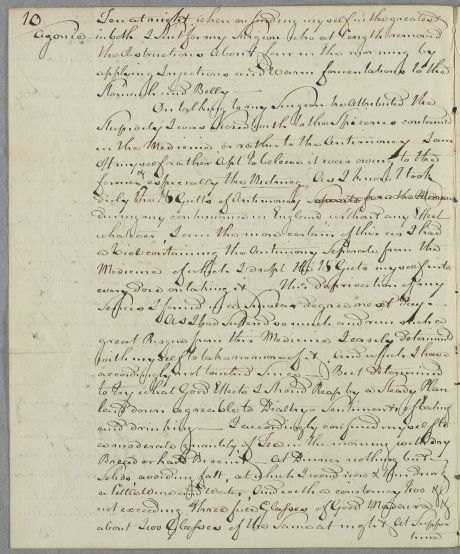 10
Ten at night, when on finding myself in the greatest
Agonie in both I Sent for my Surgeon who at Length removed
the Obstructions about four in the morning by
applying Injections and Warm fomentations to the
Stomach and Belly
On talking to my Surgeon he Attributed the
Stupidity I was Seized with to the Spiceries contained
in the Medicine or rather to the Antimony I am
Myself rather Apt to believe it was owing to the
former & especially the Nutmeg As I know I took
daily the 15 Gutts of Antimony Separate
during my continuance in England without any Effect
whatever, I am the more certain of this as I had
a Vial containing the Antimony Seperate from the
Medicine of which I dropt the 15 Gutts myself into
every dose on taking it This deprivation of my
Sences I found in a Smaler degree next day
As I had Suffered so much and run such a
great Risque from this Medicine I easily determined
with myself to take no more of it And which I have
accordingly not touched Since But determined
to try what Good Effects I Should Reap by a Steady Plan
laid down agreeable to Sentiments of eating
and drinking I accordingly confined myself to
a moderate quantity of Tea in the morning with dry
Bread or hard Biscuit at Dinner nothing but
Solids avoiding fatt, at which I used now & then drink
a little wine and water, And with a constancy two &
not exceeding three full Glasses of Good Madeira &
about two Glasses of the Same at night At Supper
time